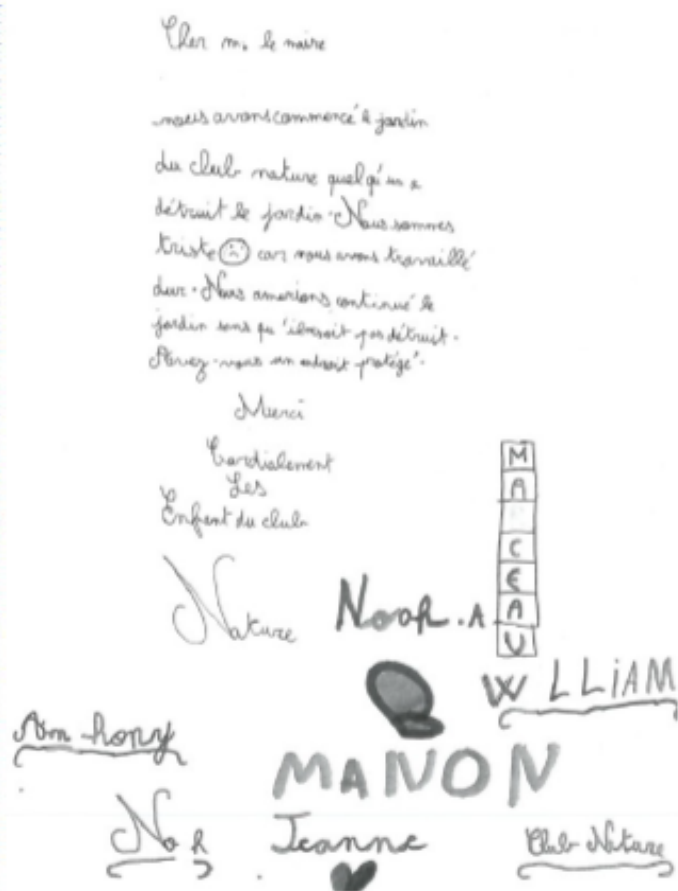 Cher m. le maire
nous avons commencé le jardin
du club nature quelqi'un a
détruit le jardin. Nous sommes
triste car nous avons travaillé
dur. Nous amerions continué le
jardin sans qu'il soit pas détruit.
Avez-vous un endroit protégé.
Merci
Cardialement
Les
Enfant du club
Nature
Noor.A
MA CEAU
W LLiAM
MANON
Jeanne
Club Nature